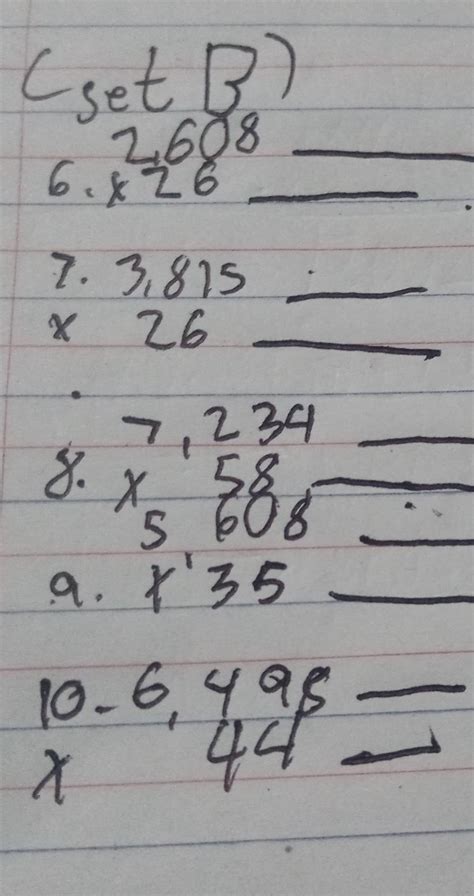 (set B)
2,608
6. x 26
7. 3,815
x 26
7,234
8. x 58
5,608
9. x 35
10- 6,498
x 44